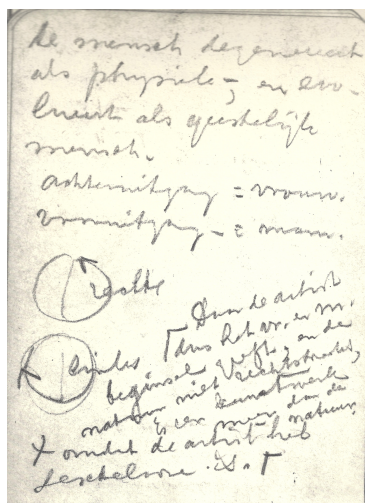 de mensch degenereert
als physiek-, en evo-
lueert als geestelijk
mensch.
achteruitgang = vrouw.
vooruitgang = man.
rechte
Daar de artist
cirkel dus het vr. en m.
beginsel heeft, en de
natuur niet rechtstreeks,
is een kunstwerk
meer dan de
natuur.
+ omdat de artist